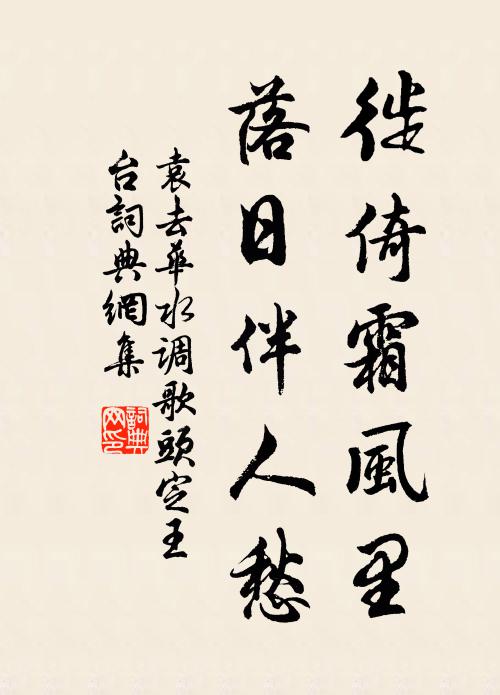 徙倚霜風里
落日伴人愁
袁去華水调歌頭定王
台詞典網集
詞典
网印